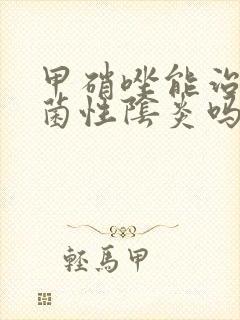 甲硝唑能治
菌性陰炎吗
轻馬甲